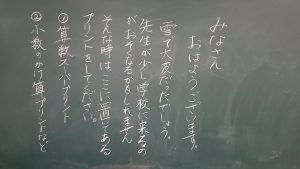 みなさん
おはようございます。
雪で大変だったでしょう。
先生が少し学校に来るの
がおそくなるかもしれません
そんな時はここに置いてある
プリントをしてください。
①算数スーパープリント
②小数のかけ算プリントなど